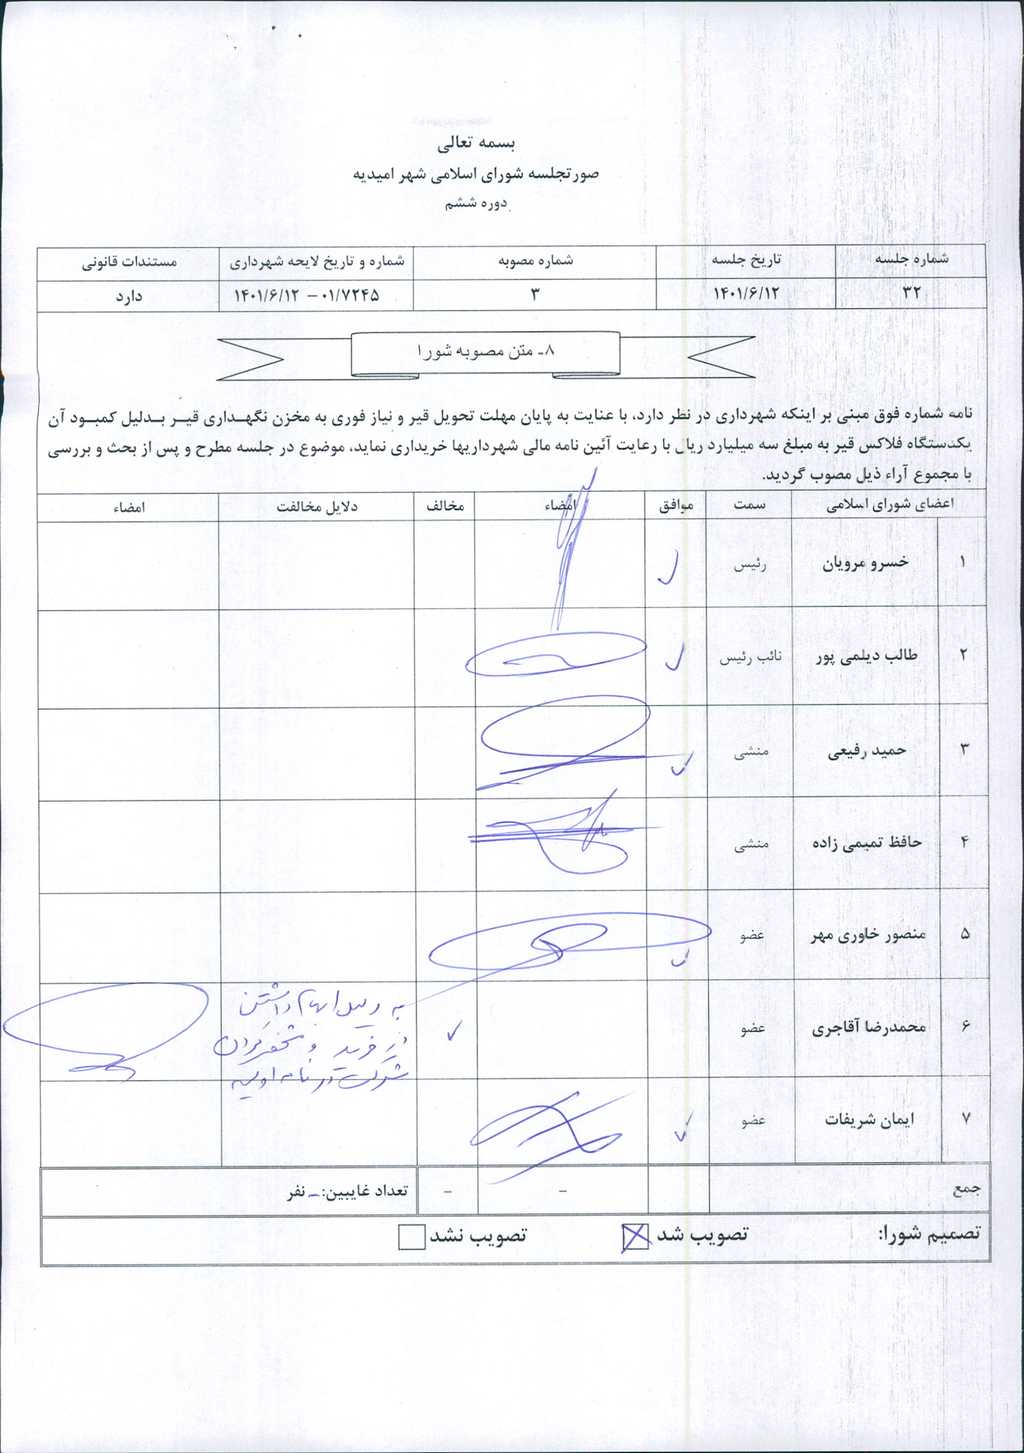 بسمه تعالی
صورتجلسه شورای اسلامی شهر امیدیه
دوره ششم
شماره جلسه تاریخ جلسه شماره مصوبه شماره و تاریخ لایحه شهرداری مستندات قانونی
۳۲ ۱۴۰۱/۶/۱۲ ۳ ۰۱/۷۲۴۵ – ۱۴۰۱/۶/۱۲ دارد
۸ـ متن مصوبه شورا
نامه شماره فوق مبنی بر اینکه شهرداری در نظر دارد، با عنایت به پایان مهلت تحویل قیر و نیاز فوری به مخزن نگهداری قیر بدلیل کمبود آن
یکدستگاه فلاکس قیر به مبلغ سه میلیارد ریال با رعایت آئین نامه مالی شهرداریها خریداری نماید، موضوع در جلسه مطرح و پس از بحث و بررسی
با مجموع آراء ذیل مصوب گردید.
اعضای شورای اسلامی سمت موافق امضاء مخالف دلایل مخالفت امضاء
۱ خسرو مرویان رئیس ✓
۲ طالب دیلمی پور نائب رئیس ✓
۳ حمید رفیعی منشی ✓
۴ حافظ تمیمی زاده منشی
۵ منصور خاوری مهر عضو ✓
۶ محمدرضا آقاجری عضو ✓ به دلیل ابهام داشتن
شرکت در نامه اولیه
۷ ایمان شریفات عضو ✓
جمع - - تعداد غایبین: – نفر
تصمیم شورا: تصویب شد ☒ تصویب نشد ☐